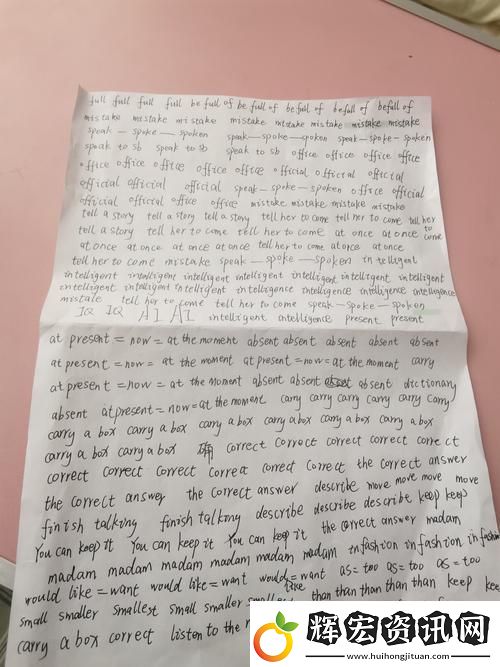 full full full full be full of be full of be full of be full of
mistake mistake mistake mistake mistake mistake mistake mistake
speak — spoke — spoken speak — spoke — spoken speak — spoke — spoken
speak to sb speak to sb speak to sb office office office office
office office office office office official official official
official official official speak — spoke — spoken office official
official official office office mistake mistake mistake mistake
tell a story tell a story tell a story tell her to come tell her to come tell her to come
tell a story tell her to come tell her to come at once at once
at once at once at once at once tell her to come at once at once
tell her to come mistake speak — spoke — spoken intelligent
intelligent intelligent intelligent intelligent intelligent intelligent intelligent
intelligent intelligent intelligent intelligence intelligence intelligence intelligence
mistake tell her to come tell her to come speak — spoke — spoken
IQ IQ AI AI intelligent intelligence present present
at present = now = at the moment absent absent absent absent absent
at present = now = at the moment at present = now = at the moment carry
at present = now = at the moment absent absent absent dictionary
absent at present = now = at the moment carry carry carry carry carry carry
carry a box carry a box carry a box carry a box carry a box carry a box
carry a box carry a box 确 correct correct correct correct correct
correct correct correct correct correct correct the correct answer
the correct answer the correct answer describe move move move move
finish talking finish talking describe describe describe keep keep
You can keep it You can keep it You can keep it the correct answer madam
madam madam madam madam madam madam in fashion in fashion in fashion
would like = want would like = want would like = want as = too as = too as = too
small smaller smallest small smaller than than than than than keep
carry a box correct listen to the
辉宏资讯网
www.huihongjituan.com